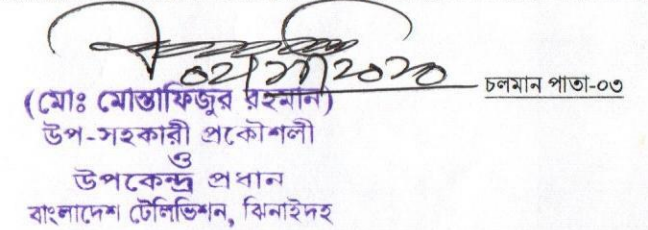 ০২/১১/২০২০
চলমান পাতা-০৩
(মোঃ মোস্তাফিজুর রহমান)
উপ-সহকারী প্রকৌশলী
ও
উপকেন্দ্র প্রধান
বাংলাদেশ টেলিভিশন, ঝিনাইদহ